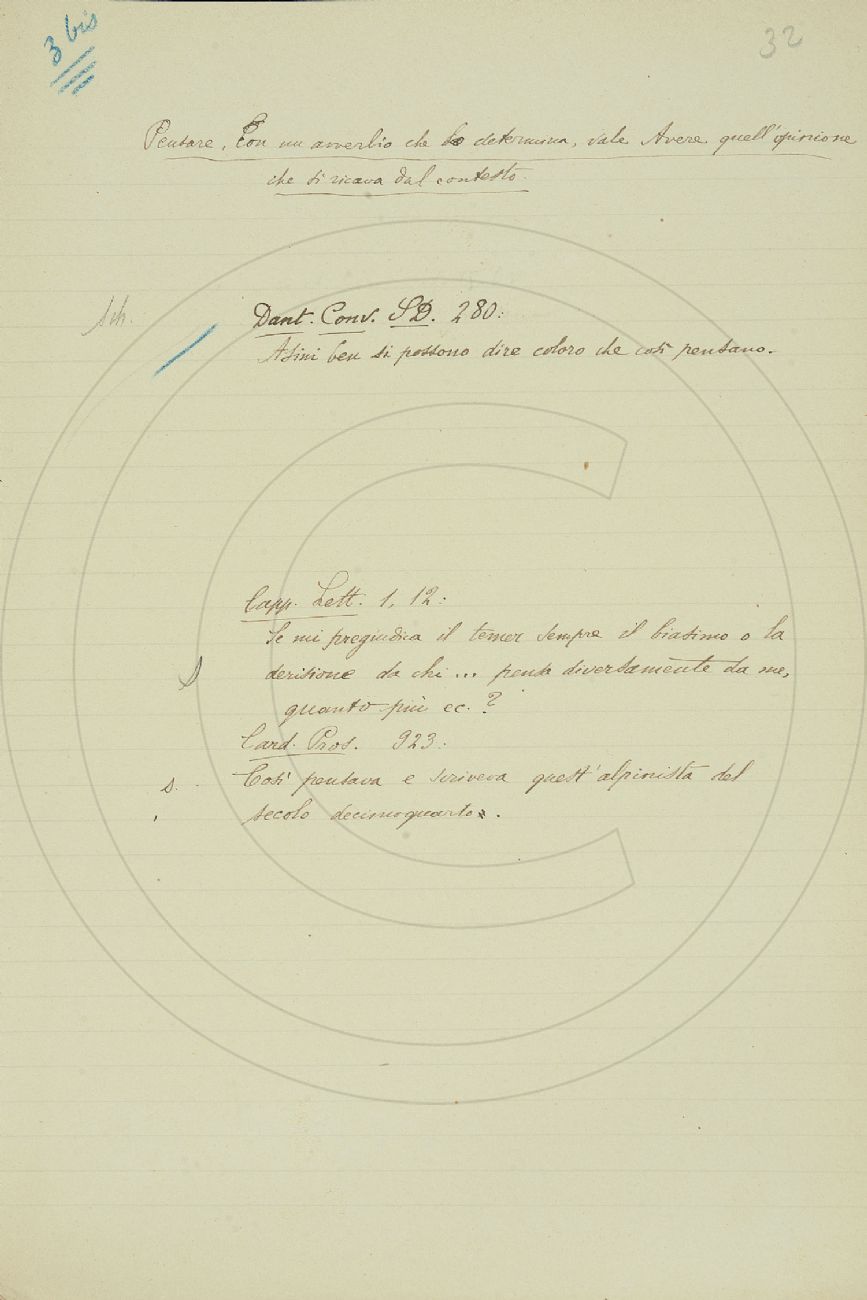 3 bis
32
Pensare, Con un avverbio che lo determina, vale Avere quell'opinione
che si ricava dal contesto.
Sch.
Dant. Conv. SD. 280:
Asini ben si possono dire coloro che così pensano.
Capp. Lett. 1, 12:
Se mi pregiudica il temer sempre il biasimo o la
S
derisione da chi ... pensa diversamente da me,
quanto più ec.?
Card. Pros. 923:
s. Così pensava e scriveva quest'alpinista del
secolo decimoquarto.